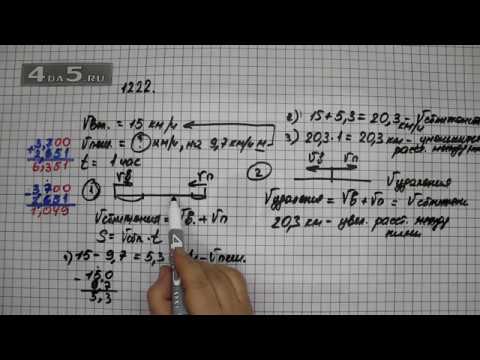 4DA5.RU
1222.
+ 3,700
2,651
6,351
- 3,700
2,651
1,049
Vвел. = 15 км/ч
Vпеш. = ? км/ч, на 9,7 км/ч м.
t = 1 час
Vв Vп
①
Vсближения = Vв. + Vп
S = Vсбл · t
1) 15 - 9,7 = 5,3 - Vпеш.
- 15,0
9,7
5,3
2) 15 + 5,3 = 20,3 - Vсближения
км/ч
3) 20,3 · 1 = 20,3 км - уменьшится
расст. между ними
②
Vв Vп
Vудаления
Vудаления = Vв + Vп = Vсближен
20,3 км - увел. расст. между
ними